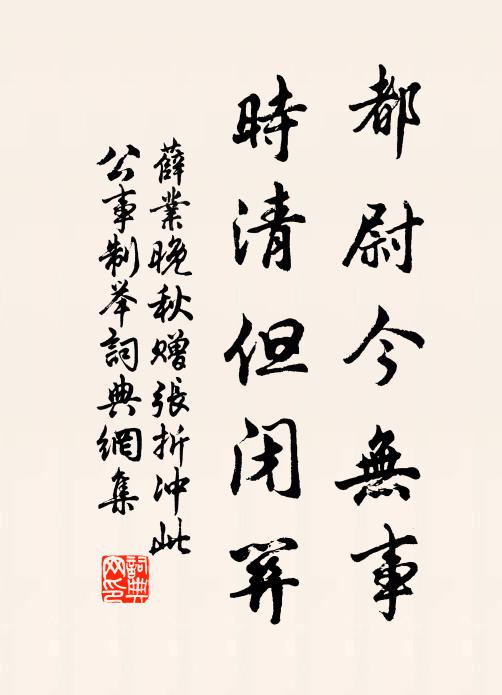 都尉今無事
時清但闭關
薛業晚秋贈張折冲此
公事制举詞典網集
詞典
网印